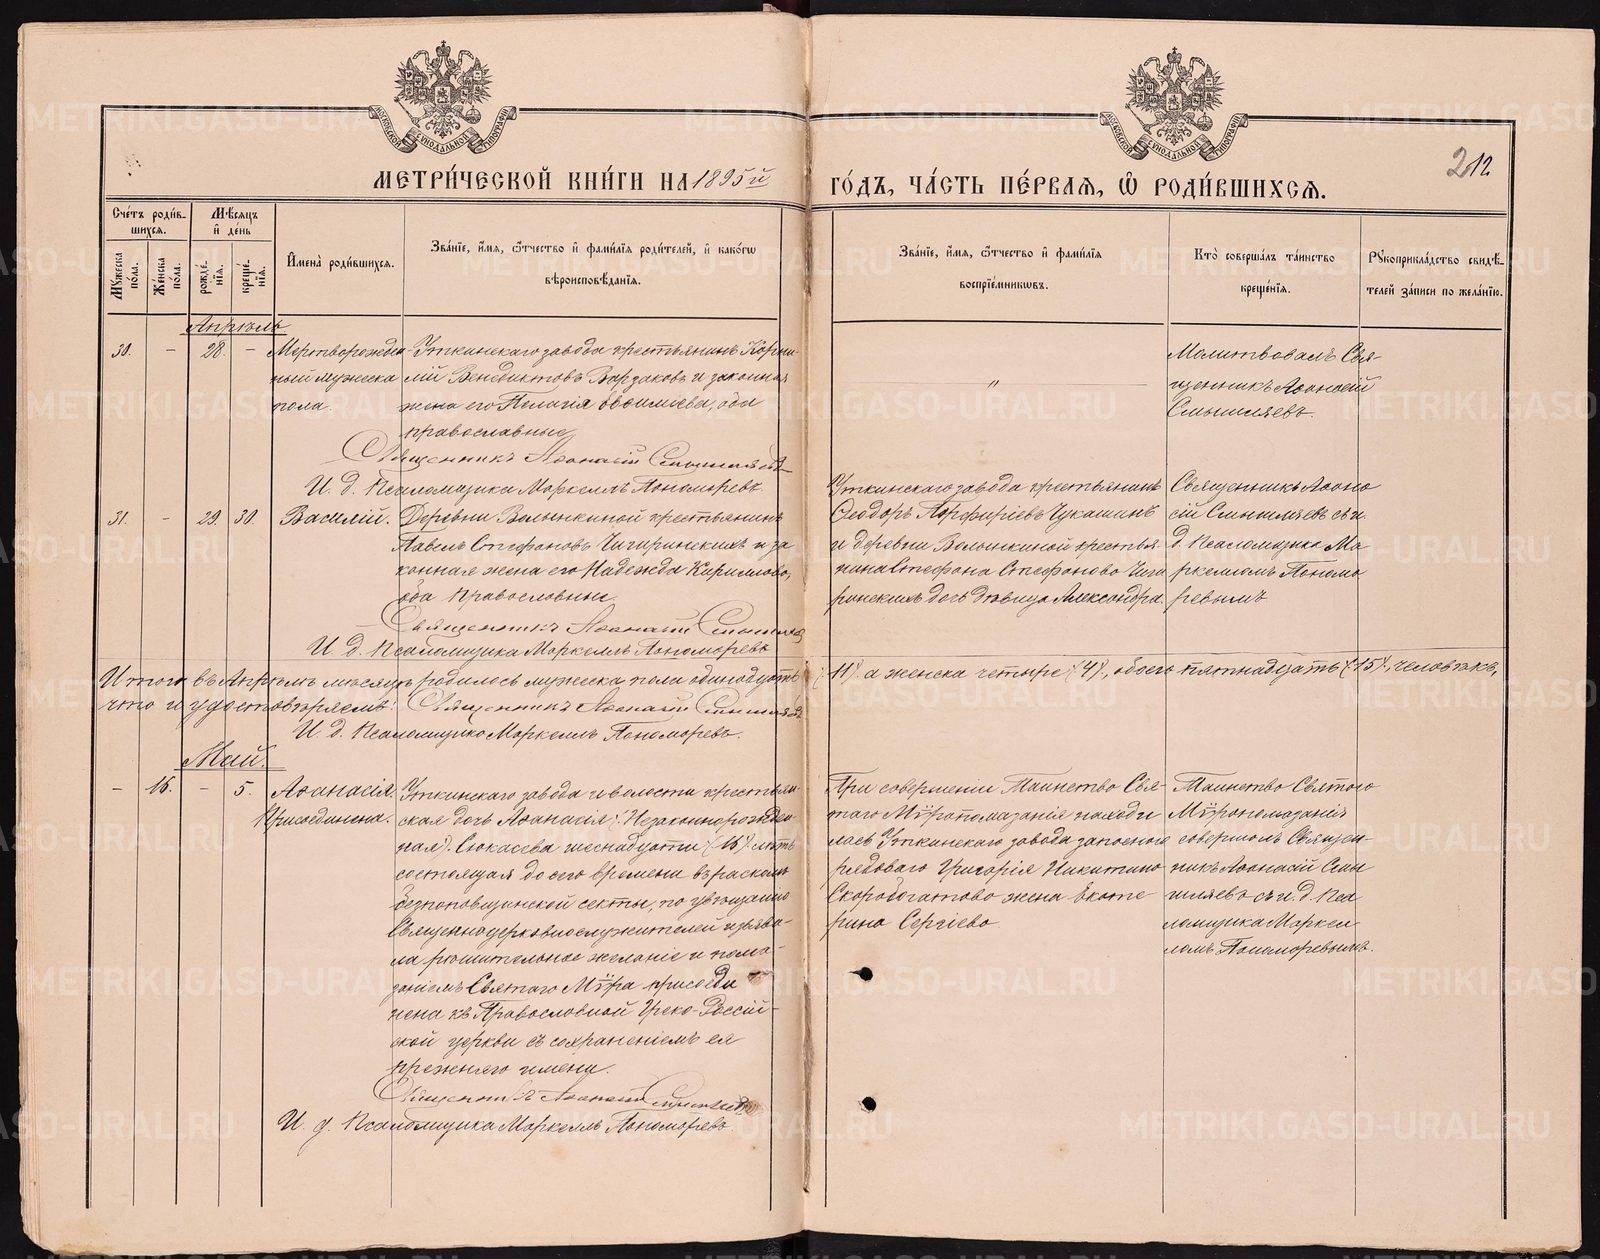 МЕТРИ́ЧЕСКОЙ КНИ́ГИ НА 1895й ГО́ДЪ, ЧА́СТЬ ПЕ́РВАЯ, Ѽ РОДИ́ВШИХСЯ.
212
МОСКОВСКОЙ СѴНОДАЛЬНОЙ ТИПОГРАФІИ
МОСКОВСКОЙ СѴНОДАЛЬНОЙ ТИПОГРАФІИ
Сче́тъ роди́в-
шихся.
Му́жеска пола.
Же́нска пола.
Мѣ́сяцъ
и҆ де́нь
рожде́-
нїѧ.
креще́-
нїѧ.
И҆мена̀ роди́вшихся.
Зва́нїе, и҆́мѧ, ѻ҆́тчество и҆ фами́лїѧ роди́телей, и҆ како́гѡ
вѣроисповѣ́данїѧ.
Зва́нїе, и҆́мѧ, ѻ҆́тчество и҆ фами́лїѧ
воспрїе́мникѡвъ.
Кто̀ соверша́лъ та́инство
креще́нїѧ.
Рꙋкоприкла́дство свидѣ́-
телей за́писи по жела́нїю.
Апрѣль.
30. - 28. - Мертворожден-
ный мужеска
пола.
Уткинскаго завода крестьянинъ Корни-
лій Венедиктовъ Варзаковъ и законная
жена его Пелагія Евѳиміева, оба
православные
Священникъ Аѳанасій Смышляевъ
И. д. Псаломщика Маркеллъ Пономоревъ.
"
Молитвовалъ Свя-
щенникъ Аѳанасій
Смышляевъ.
31. - 29. 30. Василій.
Деревни Волынкиной крестьянинъ
Павелъ Стефановъ Чигиринскихъ и за
конная жена его Надежда Кириллова,
оба православные
Священникъ Аѳанасій Смышляевъ
И. д. Псаломщика Маркеллъ Пономоревъ
Уткинскаго завода крестьянинъ
Ѳеодоръ Порфиріевъ Чукашинъ
и деревни Волынкиной крестья
нина Стефана Стефанова Чиги
ринскихъ дочь дѣвица Александра.
Священникъ Аѳана
сій Смышляевъ съ и.
д. Псаломщика Ма
ркелломъ Пономо
ревымъ
Итого въ Апрѣлѣ мѣсяцѣ родилось мужеска пола одиннадцать (11) а женска четыре (4), обоего пятнадцать (15), человѣкъ,
что и удостовѣряемъ: Священникъ Аѳанасій Смышляевъ
И. д. Псаломщика Маркеллъ Пономоревъ.
Май.
- 16. - 5. Аѳанасія.
Присоединена.
Уткинскаго завода и волости крестьян-
ская дочь Аѳанасія (Незаконнорожден-
ная). Сюкасева шеснадцати (16) лѣтъ
состоящая до сего времени въ расколѣ
безпоповщинской секты, по увѣщанію
Священноцерковнослужителей изъяви-
ла рѣшительное желаніе и пома-
заніемъ Святаго Мѵра присоеди
нена къ Православной Греко-Россій-
ской церкви съ сохраненіемъ ея
прежняго имени.
Священникъ Аѳанасій Смышляевъ
И. д. Псаломщика Маркеллъ Пономоревъ.
При совершеніи Таинства Свя-
таго Мѵропомазанія находи
лась Уткинскаго завода запаснаго
рядоваго Григорія Никитина
Скоробогатова жена Екате
рина Сергіева
Таинство Святого
Мѵропомазанія
совершилъ Священ-
никъ Аѳанасій Смы
шляевъ съ и. д. Пса
ломщика Маркел
ломъ Пономоревымъ.
METRIKI.GASO-URAL.RU